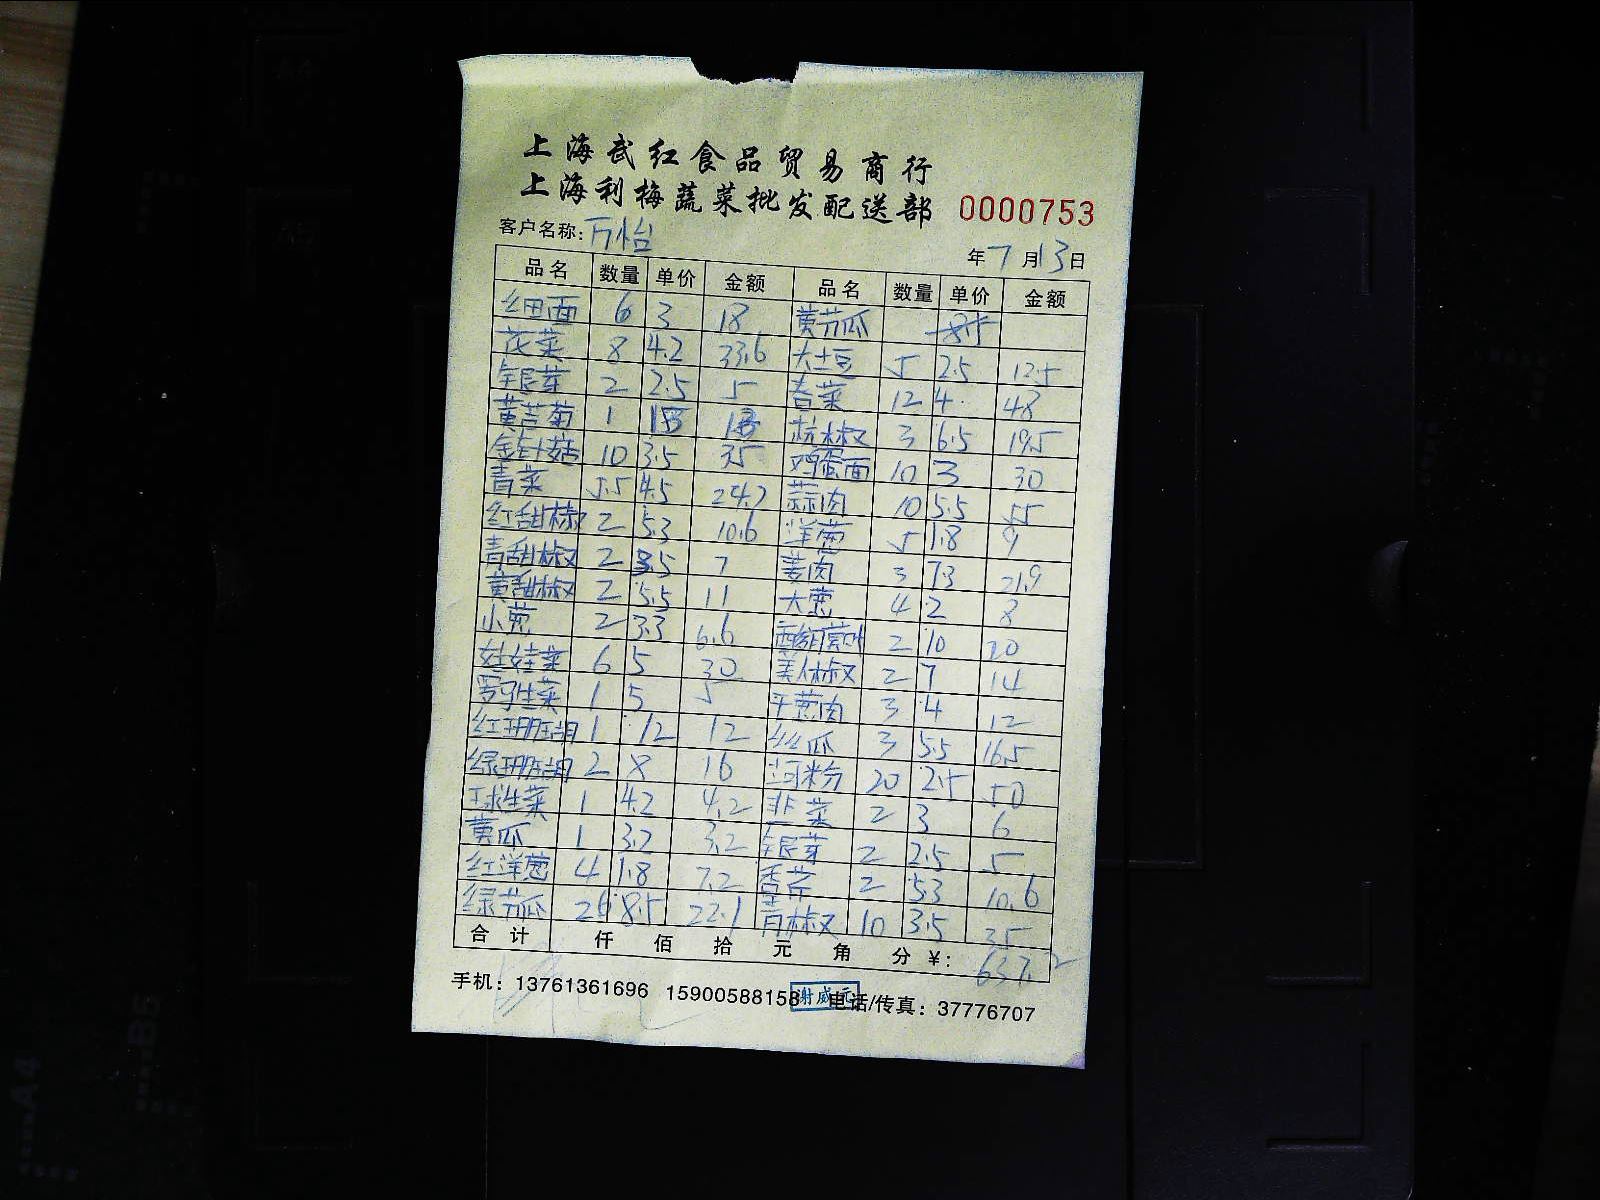 上海武红食品贸易商行
上海利梅蔬菜批发配送部 0000753
客户名称：万怡 年7月13日
品名 数量 单价 金额 品名 数量 单价 金额
细面 6 3 18 黄节瓜 8.5
花菜 8 4.2 33.6 大土豆 5 2.5 12.5
银芽 2 2.5 5 菜 12 4 48
黄苦菊 1 18 18 杭椒 3 6.5 19.5
金针菇 10 3.5 35 鸡蛋面 10 3 30
青菜 5.5 4.5 24.7 蒜肉 10 5.5 55
红甜椒 2 5.3 10.6 洋葱 5 1.8 9
青甜椒 2 3.5 7 姜肉 3 7.3 21.9
黄甜椒 2 5.5 11 大葱 4 2 8
小葱 2 3.3 6.6 2 10 20
娃娃菜 6 5 30 美人椒 2 7 14
罗马生菜 1 5 5 平菇肉 3 4 12
红珊瑚 1 12 12 丝瓜 3 5.5 16.5
绿珊瑚 2 8 16 河粉 20 2.5 50
球生菜 1 4.2 4.2 韭菜 2 3 6
黄瓜 1 3.2 3.2 银芽 2 2.5 5
红洋葱 4 1.8 7.2 香芹 2 5.3 10.6
绿节瓜 2.6 8.5 22.1 青椒 10 3.5 35
合计 仟 佰 拾 元 角 分 ¥：637.2
手机：13761361696 15900588158 谢威元 电话/传真：37776707